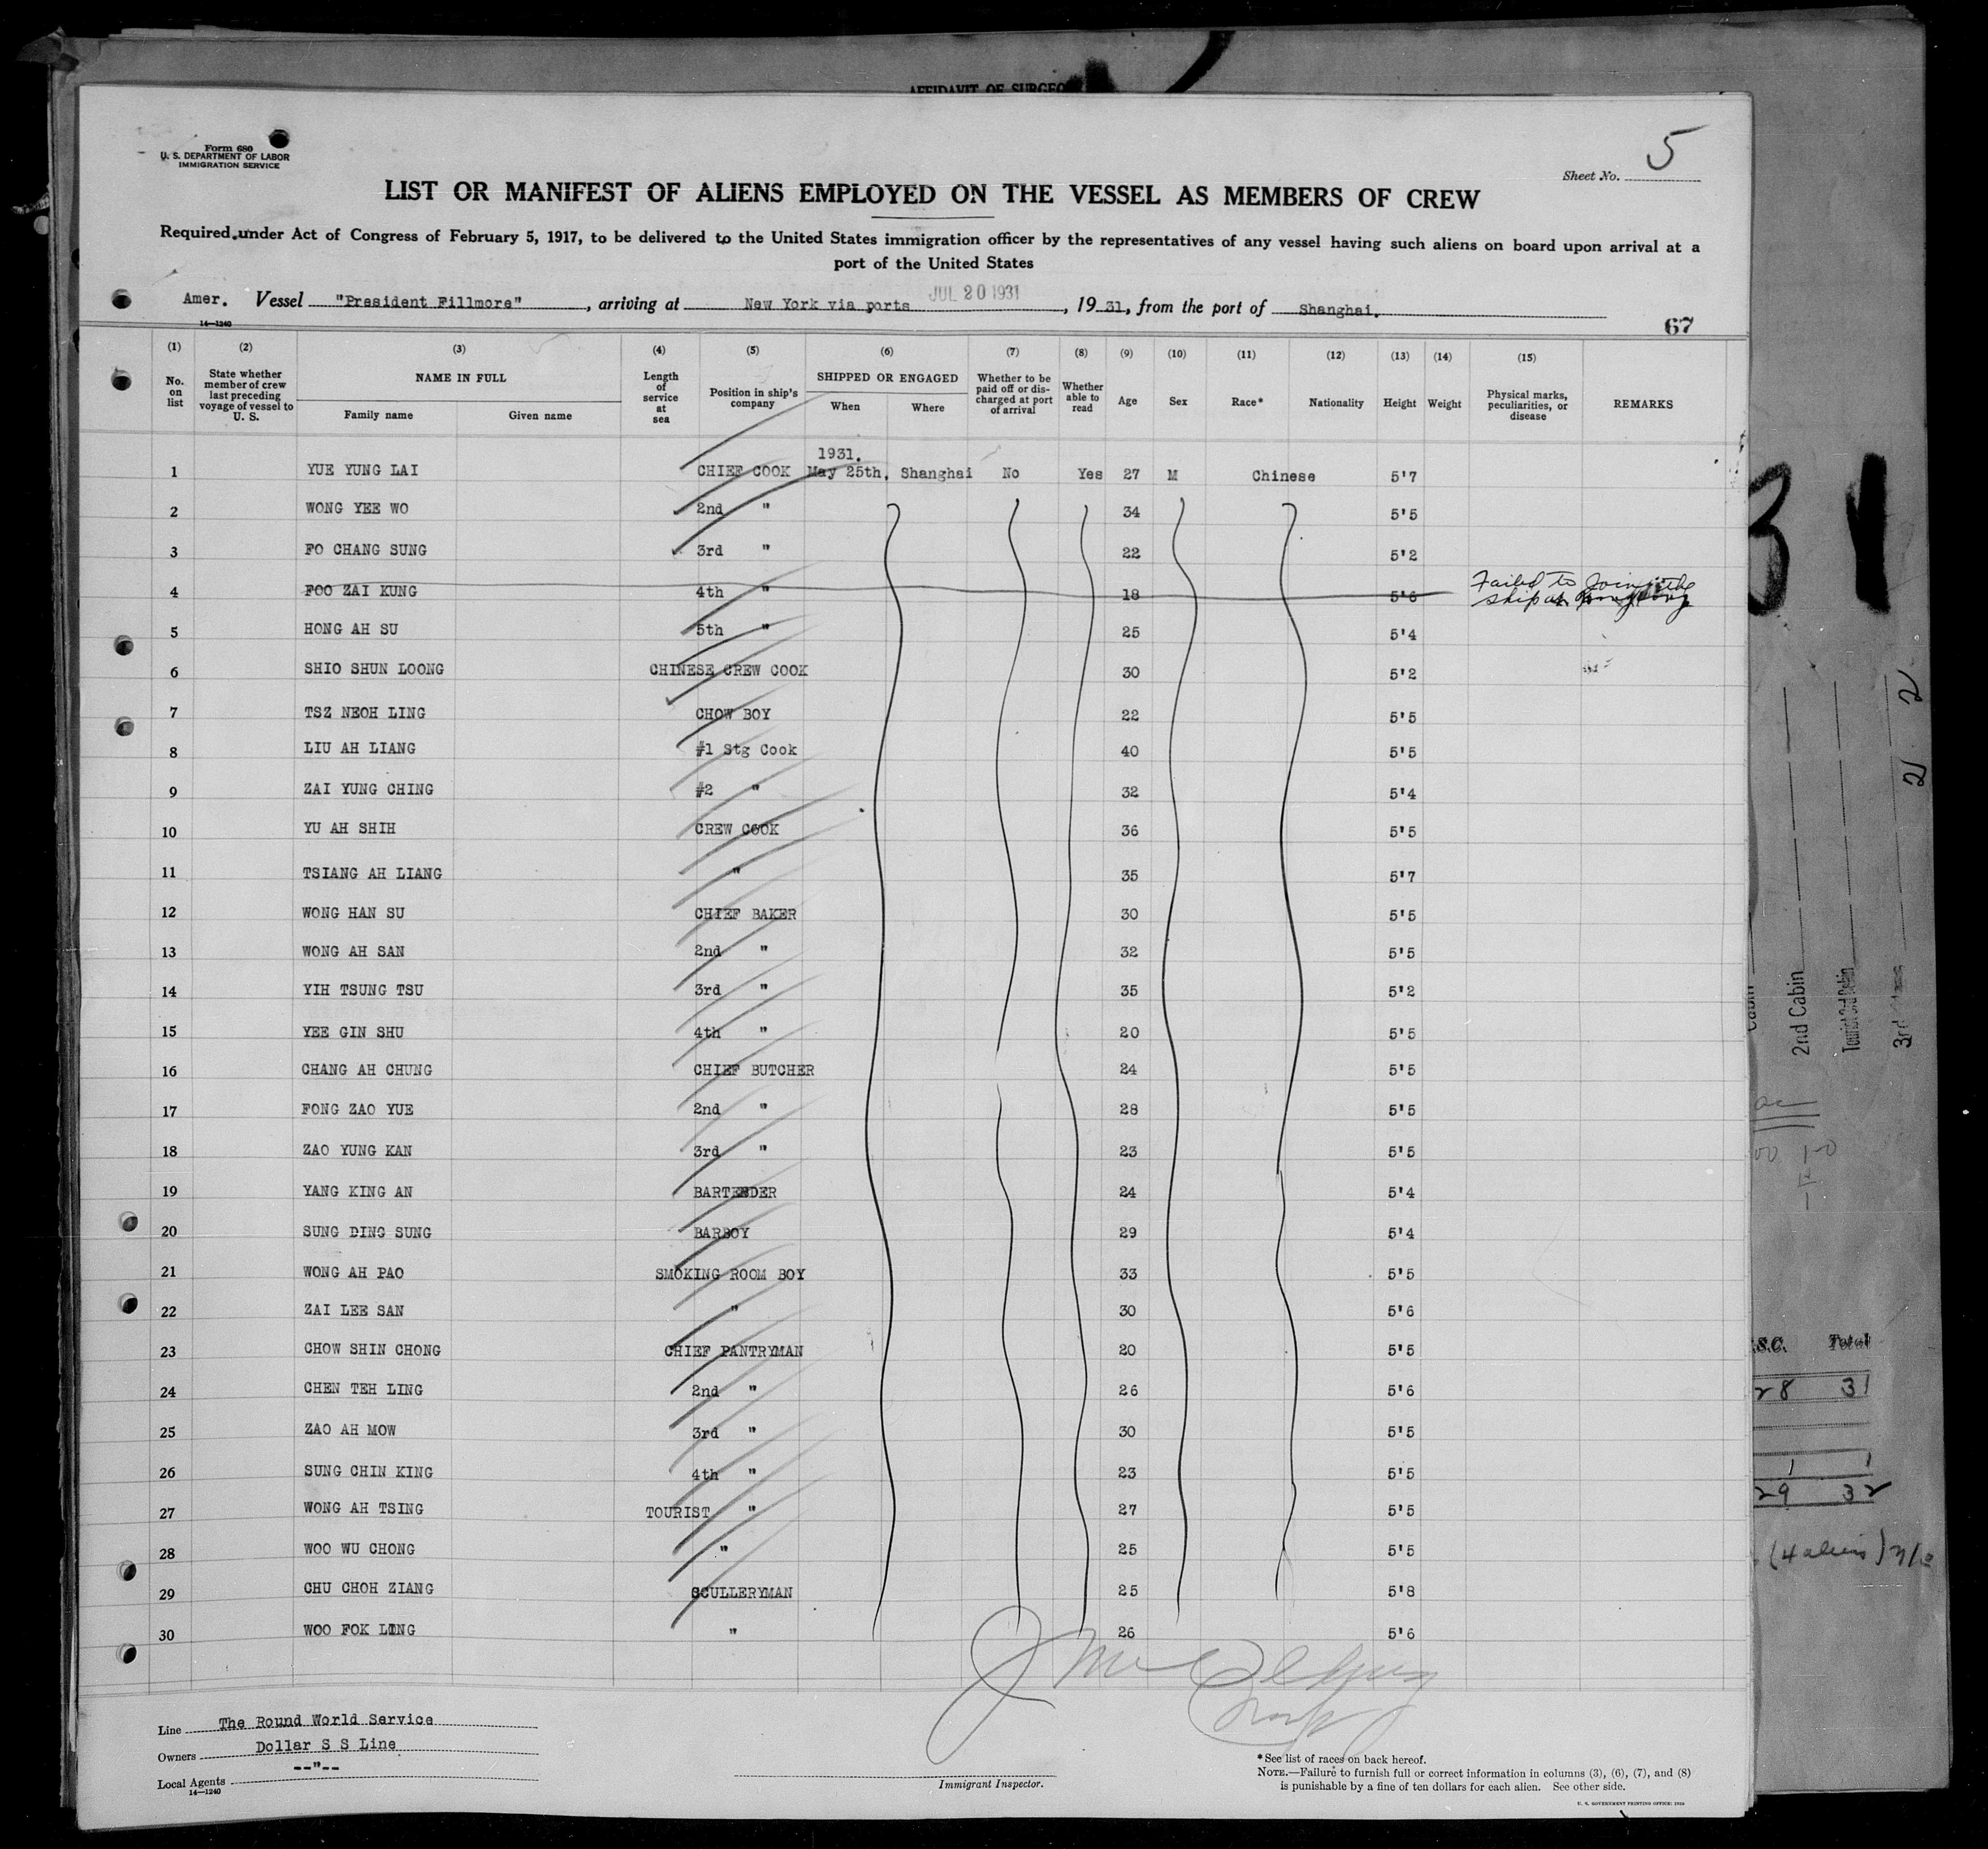 AFFIDAVIT OF SURGEO
Form 680
U. S. DEPARTMENT OF LABOR
IMMIGRATION SERVICE
Sheet No. 5
LIST OR MANIFEST OF ALIENS EMPLOYED ON THE VESSEL AS MEMBERS OF CREW
Required under Act of Congress of February 5, 1917, to be delivered to the United States immigration officer by the representatives of any vessel having such aliens on board upon arrival at a
port of the United States
Amer. Vessel "President Fillmore", arriving at New York via ports JUL 20 1931, 1931, from the port of Shanghai.
14—1240
67
(1) (2) (3) (4) (5) (6) (7) (8) (9) (10) (11) (12) (13) (14) (15)
No. on list
State whether member of crew last preceding voyage of vessel to U. S.
NAME IN FULL
Family name Given name
Length of service at sea
Position in ship's company
SHIPPED OR ENGAGED
When Where
Whether to be paid off or discharged at port of arrival
Whether able to read
Age Sex Race* Nationality Height Weight
Physical marks, peculiarities, or disease
REMARKS
1931.
1 YUE YUNG LAI CHIEF COOK May 25th, Shanghai No Yes 27 M Chinese 5'7
2 WONG YEE WO 2nd " 34 5'5
3 FO CHANG SUNG 3rd " 22 5'2
4 FOO ZAI KUNG 4th " 18 5'6 Failed to join the
ship at
5 HONG AH SU 5th " 25 5'4
6 SHIO SHUN LOONG CHINESE CREW COOK 30 5'2
7 TSZ NEOH LING CHOW BOY 22 5'5
8 LIU AH LIANG #1 Stg Cook 40 5'5
9 ZAI YUNG CHING #2 " 32 5'4
10 YU AH SHIH CREW COOK 36 5'5
11 TSIANG AH LIANG " 35 5'7
12 WONG HAN SU CHIEF BAKER 30 5'5
13 WONG AH SAN 2nd " 32 5'5
14 YIH TSUNG TSU 3rd " 35 5'2
15 YEE GIN SHU 4th " 20 5'5
16 CHANG AH CHUNG CHIEF BUTCHER 24 5'5
17 FONG ZAO YUE 2nd " 28 5'5
18 ZAO YUNG KAN 3rd " 23 5'5
19 YANG KING AN BARTENDER 24 5'4
20 SUNG DING SUNG BARBOY 29 5'4
21 WONG AH PAO SMOKING ROOM BOY 33 5'5
22 ZAI LEE SAN " 30 5'6
23 CHOW SHIN CHONG CHIEF PANTRYMAN 20 5'5
24 CHEN TEH LING 2nd " 26 5'6
25 ZAO AH MOW 3rd " 30 5'5
26 SUNG CHIN KING 4th " 23 5'5
27 WONG AH TSING TOURIST " 27 5'5
28 WOO WU CHONG " 25 5'5
29 CHU CHOH ZIANG SCULLERYMAN 25 5'8
30 WOO FOK LING " 26 5'6
Line The Round World Service
Owners Dollar S S Line
Local Agents --"--
14—1240
Immigrant Inspector.
*See list of races on back hereof.
NOTE.—Failure to furnish full or correct information in columns (3), (6), (7), and (8)
is punishable by a fine of ten dollars for each alien. See other side.
U. S. GOVERNMENT PRINTING OFFICE: 1930
31
2 2
Cabin
2nd Cabin
Tourist 3rd Cabin
3rd Class
.S.C. Total
28 31
1 1
29 32
(4 aliens)